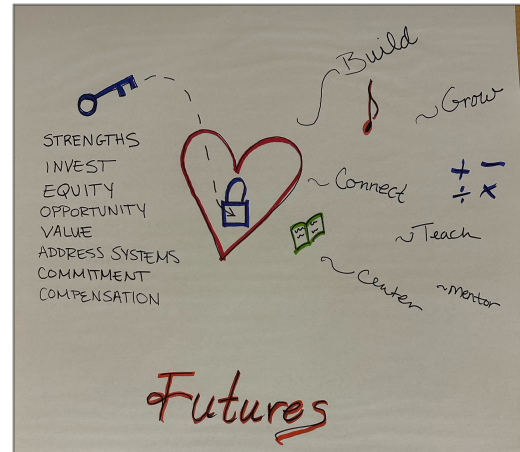 STRENGTHS
INVEST
EQUITY
OPPORTUNITY
VALUE
ADDRESS SYSTEMS
COMMITMENT
COMPENSATION
Build
~ Grow
~ Connect
+ −
÷ ×
~ Teach
~ Center
~ Mentor
Futures